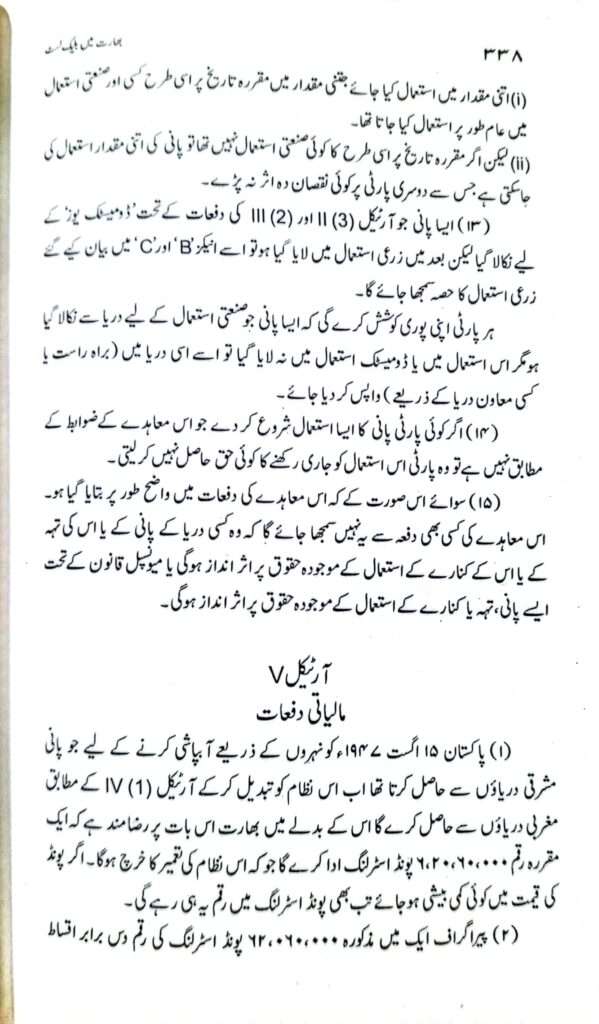 ۳۳۸
بھارت میں بلیک لسٹ
(i) اتنی مقدار میں استعمال کیا جائے جتنی مقدار میں مقررہ تاریخ پر اسی طرح کسی اور صنعتی استعمال
میں عام طور پر استعمال کیا جاتا تھا۔
(ii) لیکن اگر مقررہ تاریخ پر اسی طرح کا کوئی صنعتی استعمال نہیں تھا تو پانی کی اتنی مقدار استعمال کی
جاسکتی ہے جس سے دوسری پارٹی پر کوئی نقصان دہ اثر نہ پڑے۔
(۱۳) ایسا پانی جو آرٹیکل II (3) اور III (2) کی دفعات کے تحت ’ڈومیسٹک یوز‘ کے
لیے نکالا گیا لیکن بعد میں زرعی استعمال میں لایا گیا ہو تو اسے انیکز ’B‘ اور ’C‘ میں بیان کیے گئے
زرعی استعمال کا حصہ سمجھا جائے گا۔
ہر پارٹی اپنی پوری کوشش کرے گی کہ ایسا پانی جو صنعتی استعمال کے لیے دریا سے نکالا گیا
ہو مگر اس استعمال میں یا ڈومیسٹک استعمال میں نہ لایا گیا تو اسے اسی دریا میں (براہ راست یا
کسی معاون دریا کے ذریعے) واپس کر دیا جائے۔
(۱۴) اگر کوئی پارٹی پانی کا ایسا استعمال شروع کر دے جو اس معاہدے کے ضوابط کے
مطابق نہیں ہے تو وہ پارٹی اس استعمال کو جاری رکھنے کا کوئی حق حاصل نہیں کر لیتی۔
(۱۵) سوائے اس صورت کے کہ اس معاہدے کی دفعات میں واضح طور پر بتایا گیا ہو۔
اس معاہدے کی کسی بھی دفعہ سے یہ نہیں سمجھا جائے گا کہ وہ کسی دریا کے پانی کے یا اس کی تہہ
کے یا اس کے کنارے کے استعمال کے موجودہ حقوق پر اثر انداز ہوگی یا میونسپل قانون کے تحت
ایسے پانی، تہہ یا کنارے کے استعمال کے موجودہ حقوق پر اثر انداز ہوگی۔
آرٹیکل V
مالیاتی دفعات
(۱) پاکستان ۱۵ اگست ۱۹۴۷ء کو نہروں کے ذریعے آبپاشی کرنے کے لیے جو پانی
مشرقی دریاؤں سے حاصل کرتا تھا اب اس نظام کو تبدیل کر کے آرٹیکل IV (1) کے مطابق
مغربی دریاؤں سے حاصل کرے گا اس کے بدلے میں بھارت اس بات پر رضامند ہے کہ ایک
مقررہ رقم ۶،۲۰،۶۰،۰۰۰ پونڈ اسٹرلنگ ادا کرے گا جو کہ اس نظام کی تعمیر کا خرچ ہوگا۔ اگر پونڈ
کی قیمت میں کوئی کمی بیشی ہو جائے تب بھی پونڈ اسٹرلنگ میں رقم یہ ہی رہے گی۔
(۲) پیراگراف ایک میں مذکورہ ۶۲،۰۶۰،۰۰۰ پونڈ اسٹرلنگ کی رقم دس برابر اقساط